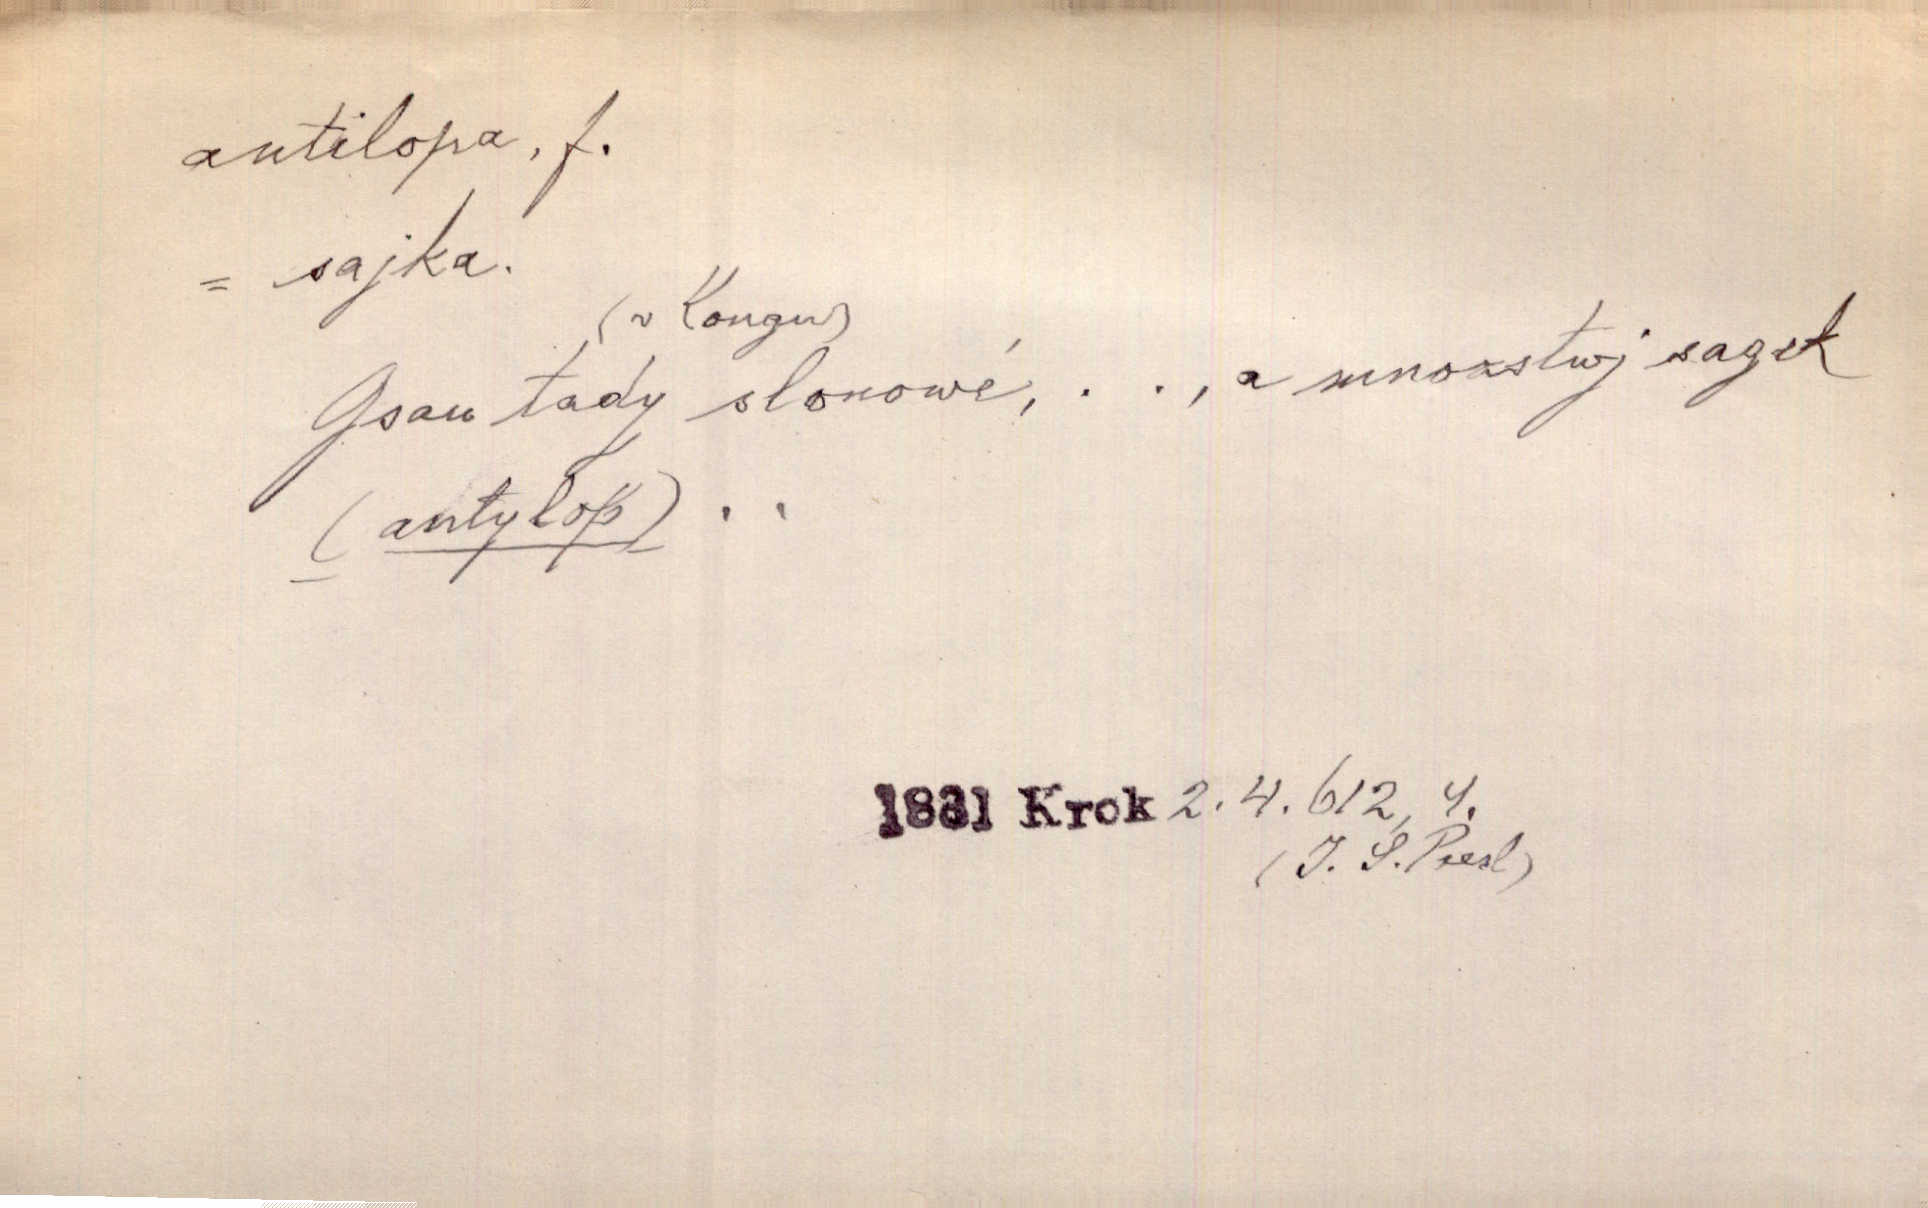 antilopa, f.
= sajka.
(v Kongu)
Gsau tady slonowé, . . , a mnoxstwj sagek
(antylop) . .
1831 Krok 2. 4. 612, 4.
(J. S. Presl)